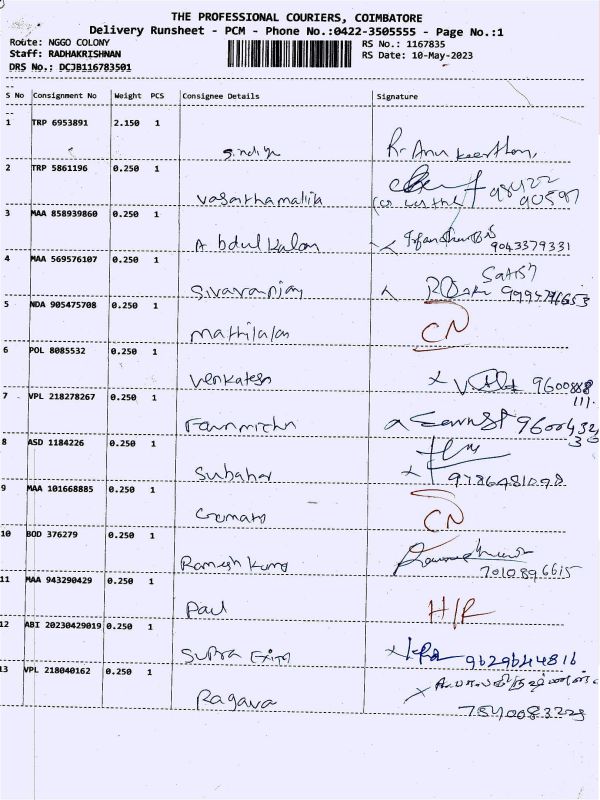 THE PROFESSIONAL COURIERS, COIMBATORE
Delivery Runsheet - PCM - Phone No.:0422-3505555 - Page No.:1
Route: NGGO COLONY
RS No.: 1167835
Staff: RADHAKRISHNAN
RS Date: 10-May-2023
DRS No.: DCJB116783501
S No Consignment No Weight PCS Consignee Details Signature
1 TRP 6953891 2.150 1
2 TRP 5861196 0.250 1
98422
90597
3 MAA 858939860 0.250 1
Abdul Kalam
9043379331
4 MAA 569576107 0.250 1
Satish
5 NDA 905475708 0.250 1
Mathilalan CN
6 POL 8085532 0.250 1
Venkatesh 9600888
111
7 VPL 218278267 0.250 1
8 ASD 1184226 0.250 1
9786481098
9 MAA 101668885 0.250 1
CN
10 BOD 376279 0.250 1
Ramesh Kumar
7010896615
11 MAA 943290429 0.250 1
Paul H/R
12 ABI 20230429019 0.250 1
Supra 9629644816
13 VPL 218040162 0.250 1
Ragava
7540083223